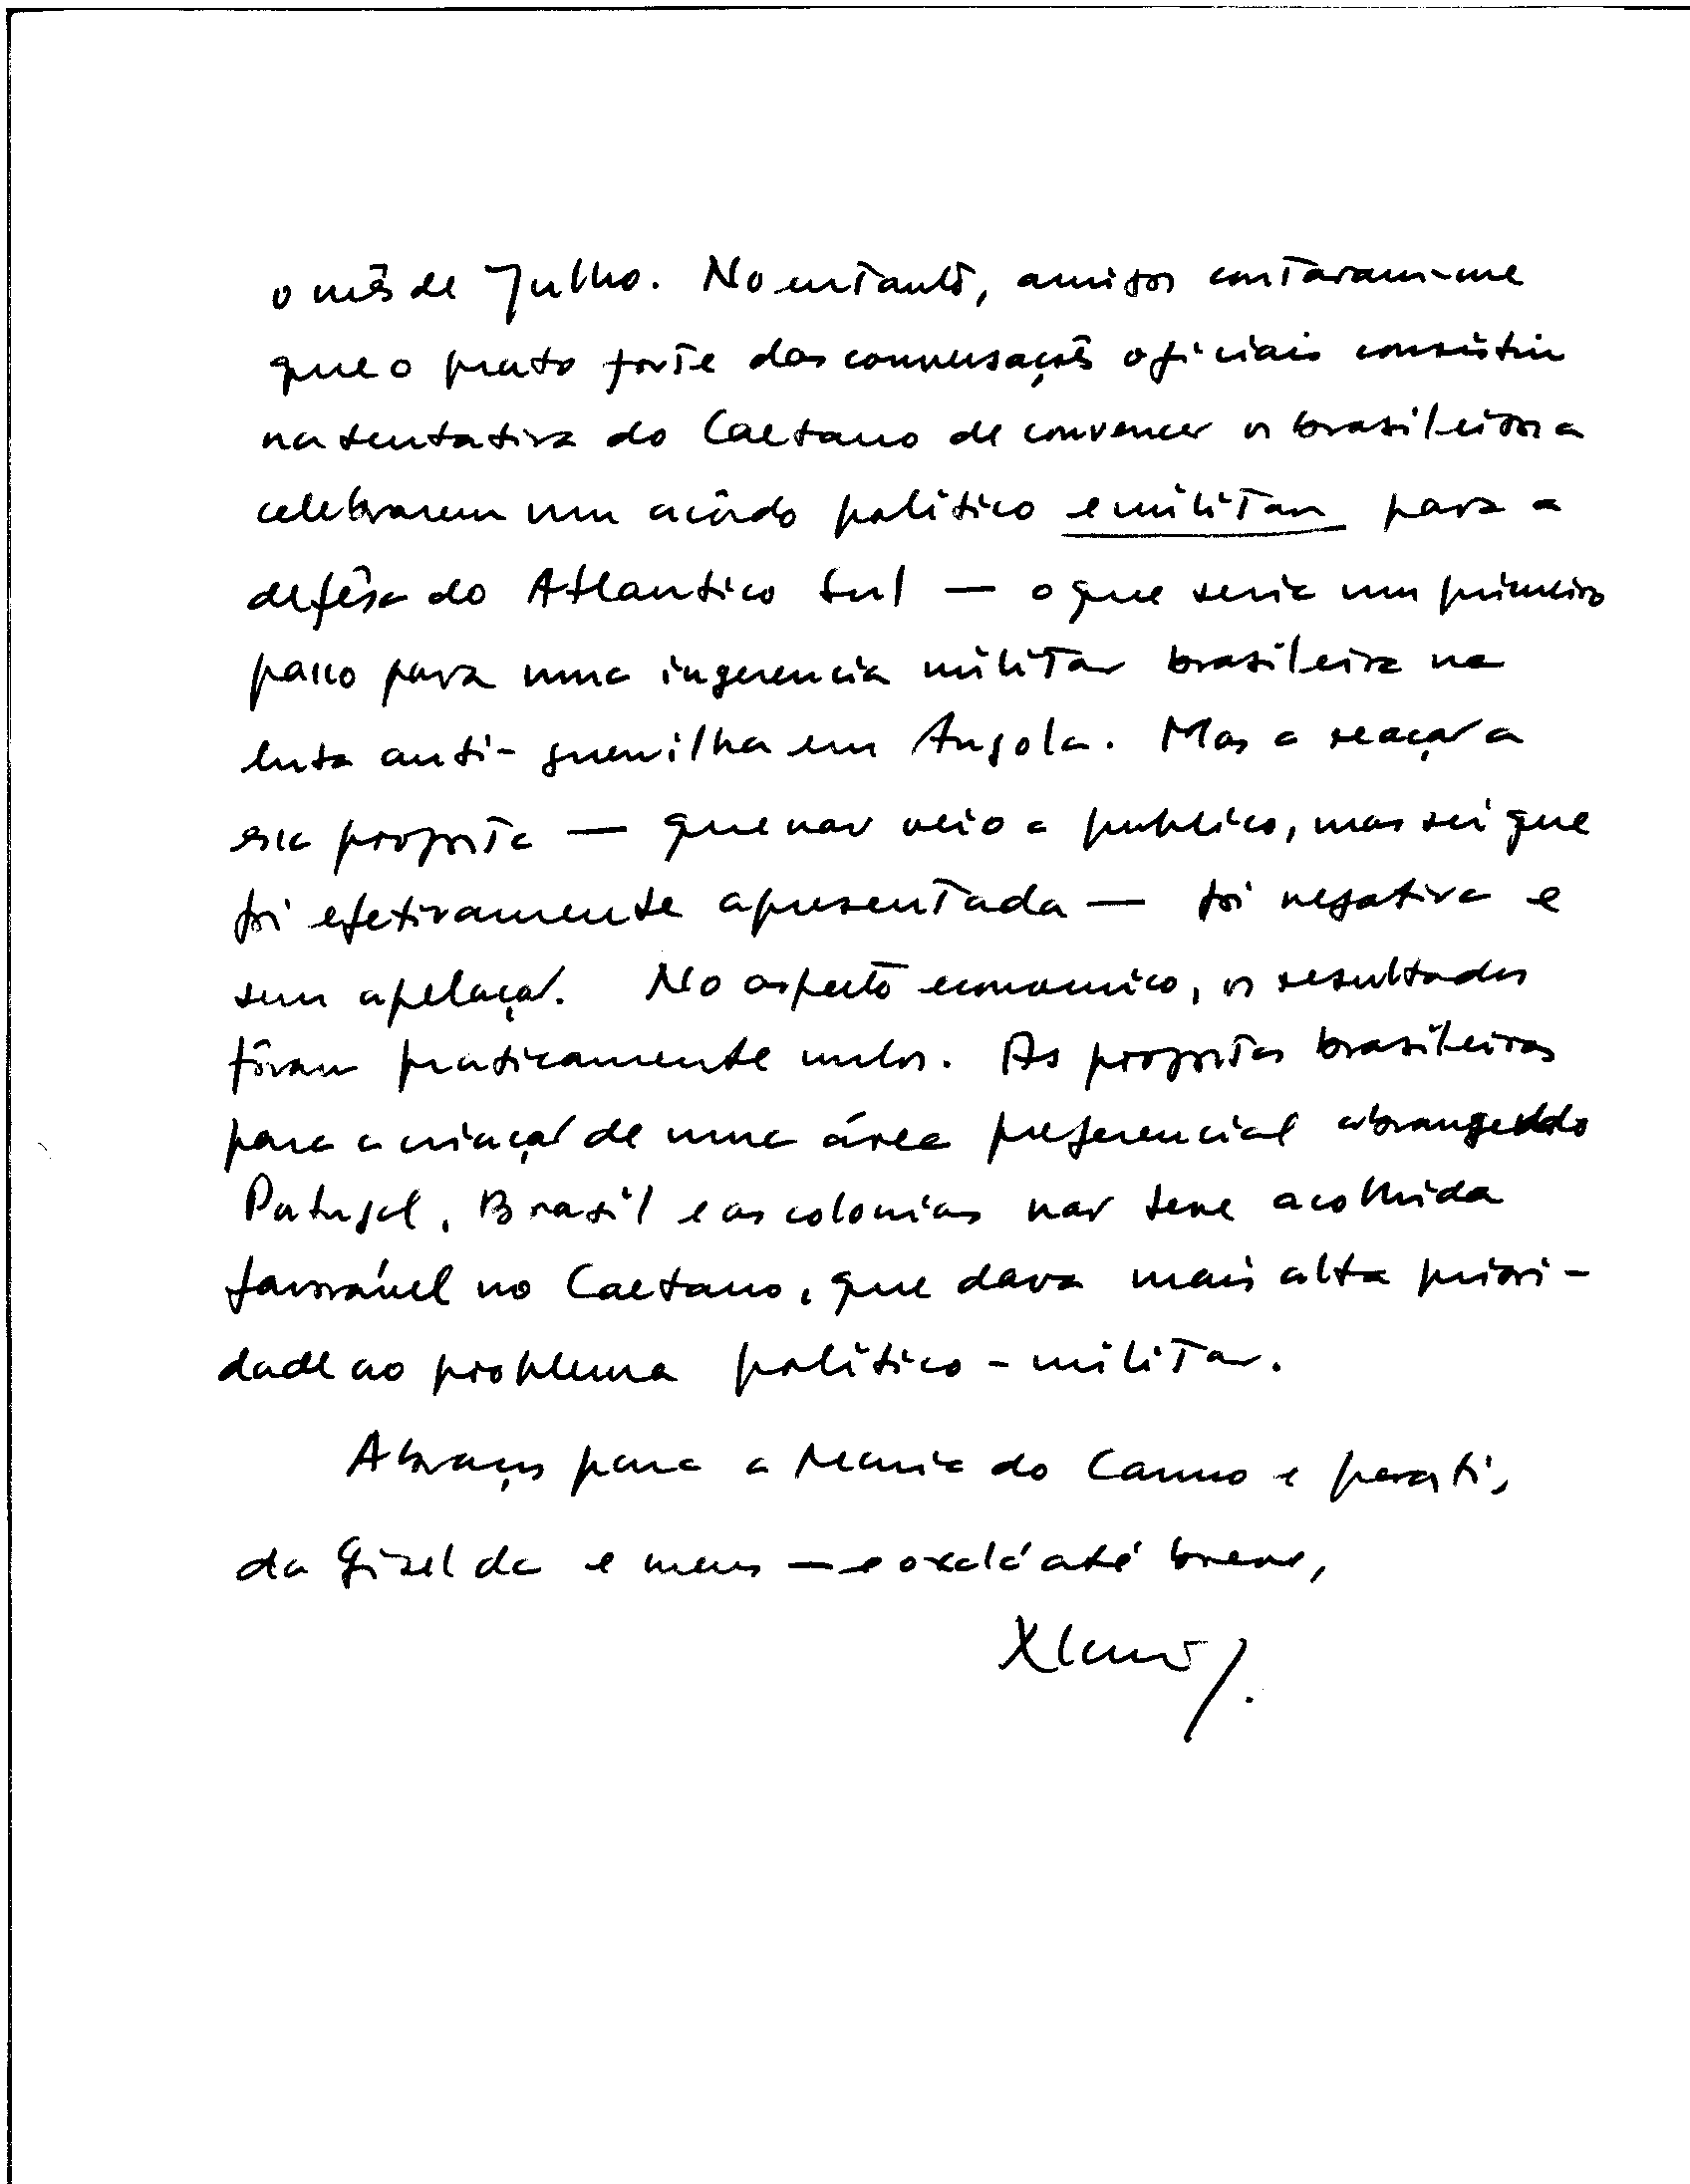 o mês de Julho. No entanto, amigos contaram-me
que o prato forte das conversações oficiais consistiu
na tentativa do Caetano de convencer os brasileiros a
celebrarem um acôrdo politico e militar para a
defêsa do Atlantico Sul — o que seria um primeiro
passo para uma ingerencia militar brasileira na
luta anti-guerrilha em Angola. Mas a reação a
essa proposta — que não veio a publico, mas sei que
foi efetivamente apresentada — foi negativa e
sem apelação. No aspecto economico, os resultados
fôram praticamente nulos. As propostas brasileiras
para a criação de uma área preferencial abrangendo
Portugal, Brasil e as colonias não teve acolhida
favorável no Caetano, que dava mais alta priori-
dade ao problema politico-militar.
Abraços para a Maria do Carmo e para ti,
da Gizelda e meus — e oxalá até breve,